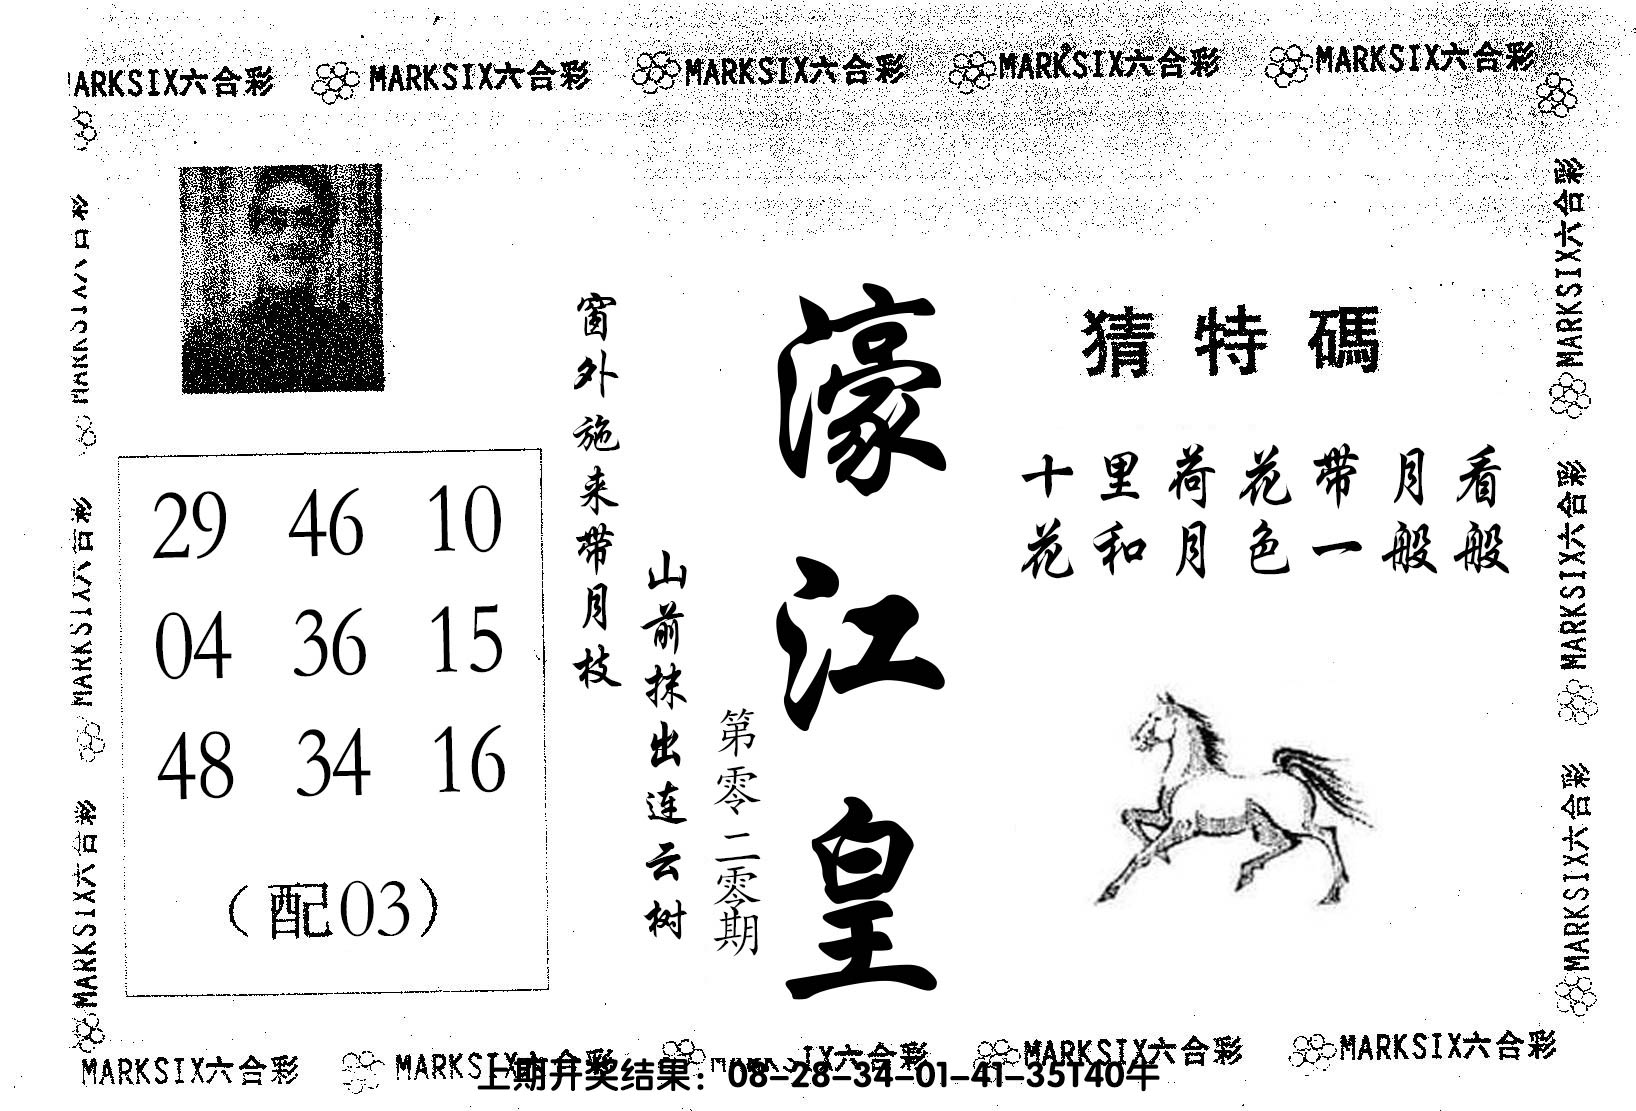 MARKSIX六合彩 MARKSIX六合彩 MARKSIX六合彩 MARKSIX六合彩 MARKSIX六合彩
猜特碼
十里荷花带月看
花和月色一般般
濠江皇
第零二零期
山前抹出连云树
窗外施来带月枝
29 46 10
04 36 15
48 34 16
（配03）
MARKSIX六合彩
MARKSIX六合彩
MARKSIX六合彩
MARKSIX六合彩
MARKSIX六合彩
MARKSIX六合彩
MARKSIX六合彩 MARKSIX六合彩 MARKSIX六合彩 MARKSIX六合彩
上期开奖结果：08-28-34-01-41-35T40牛